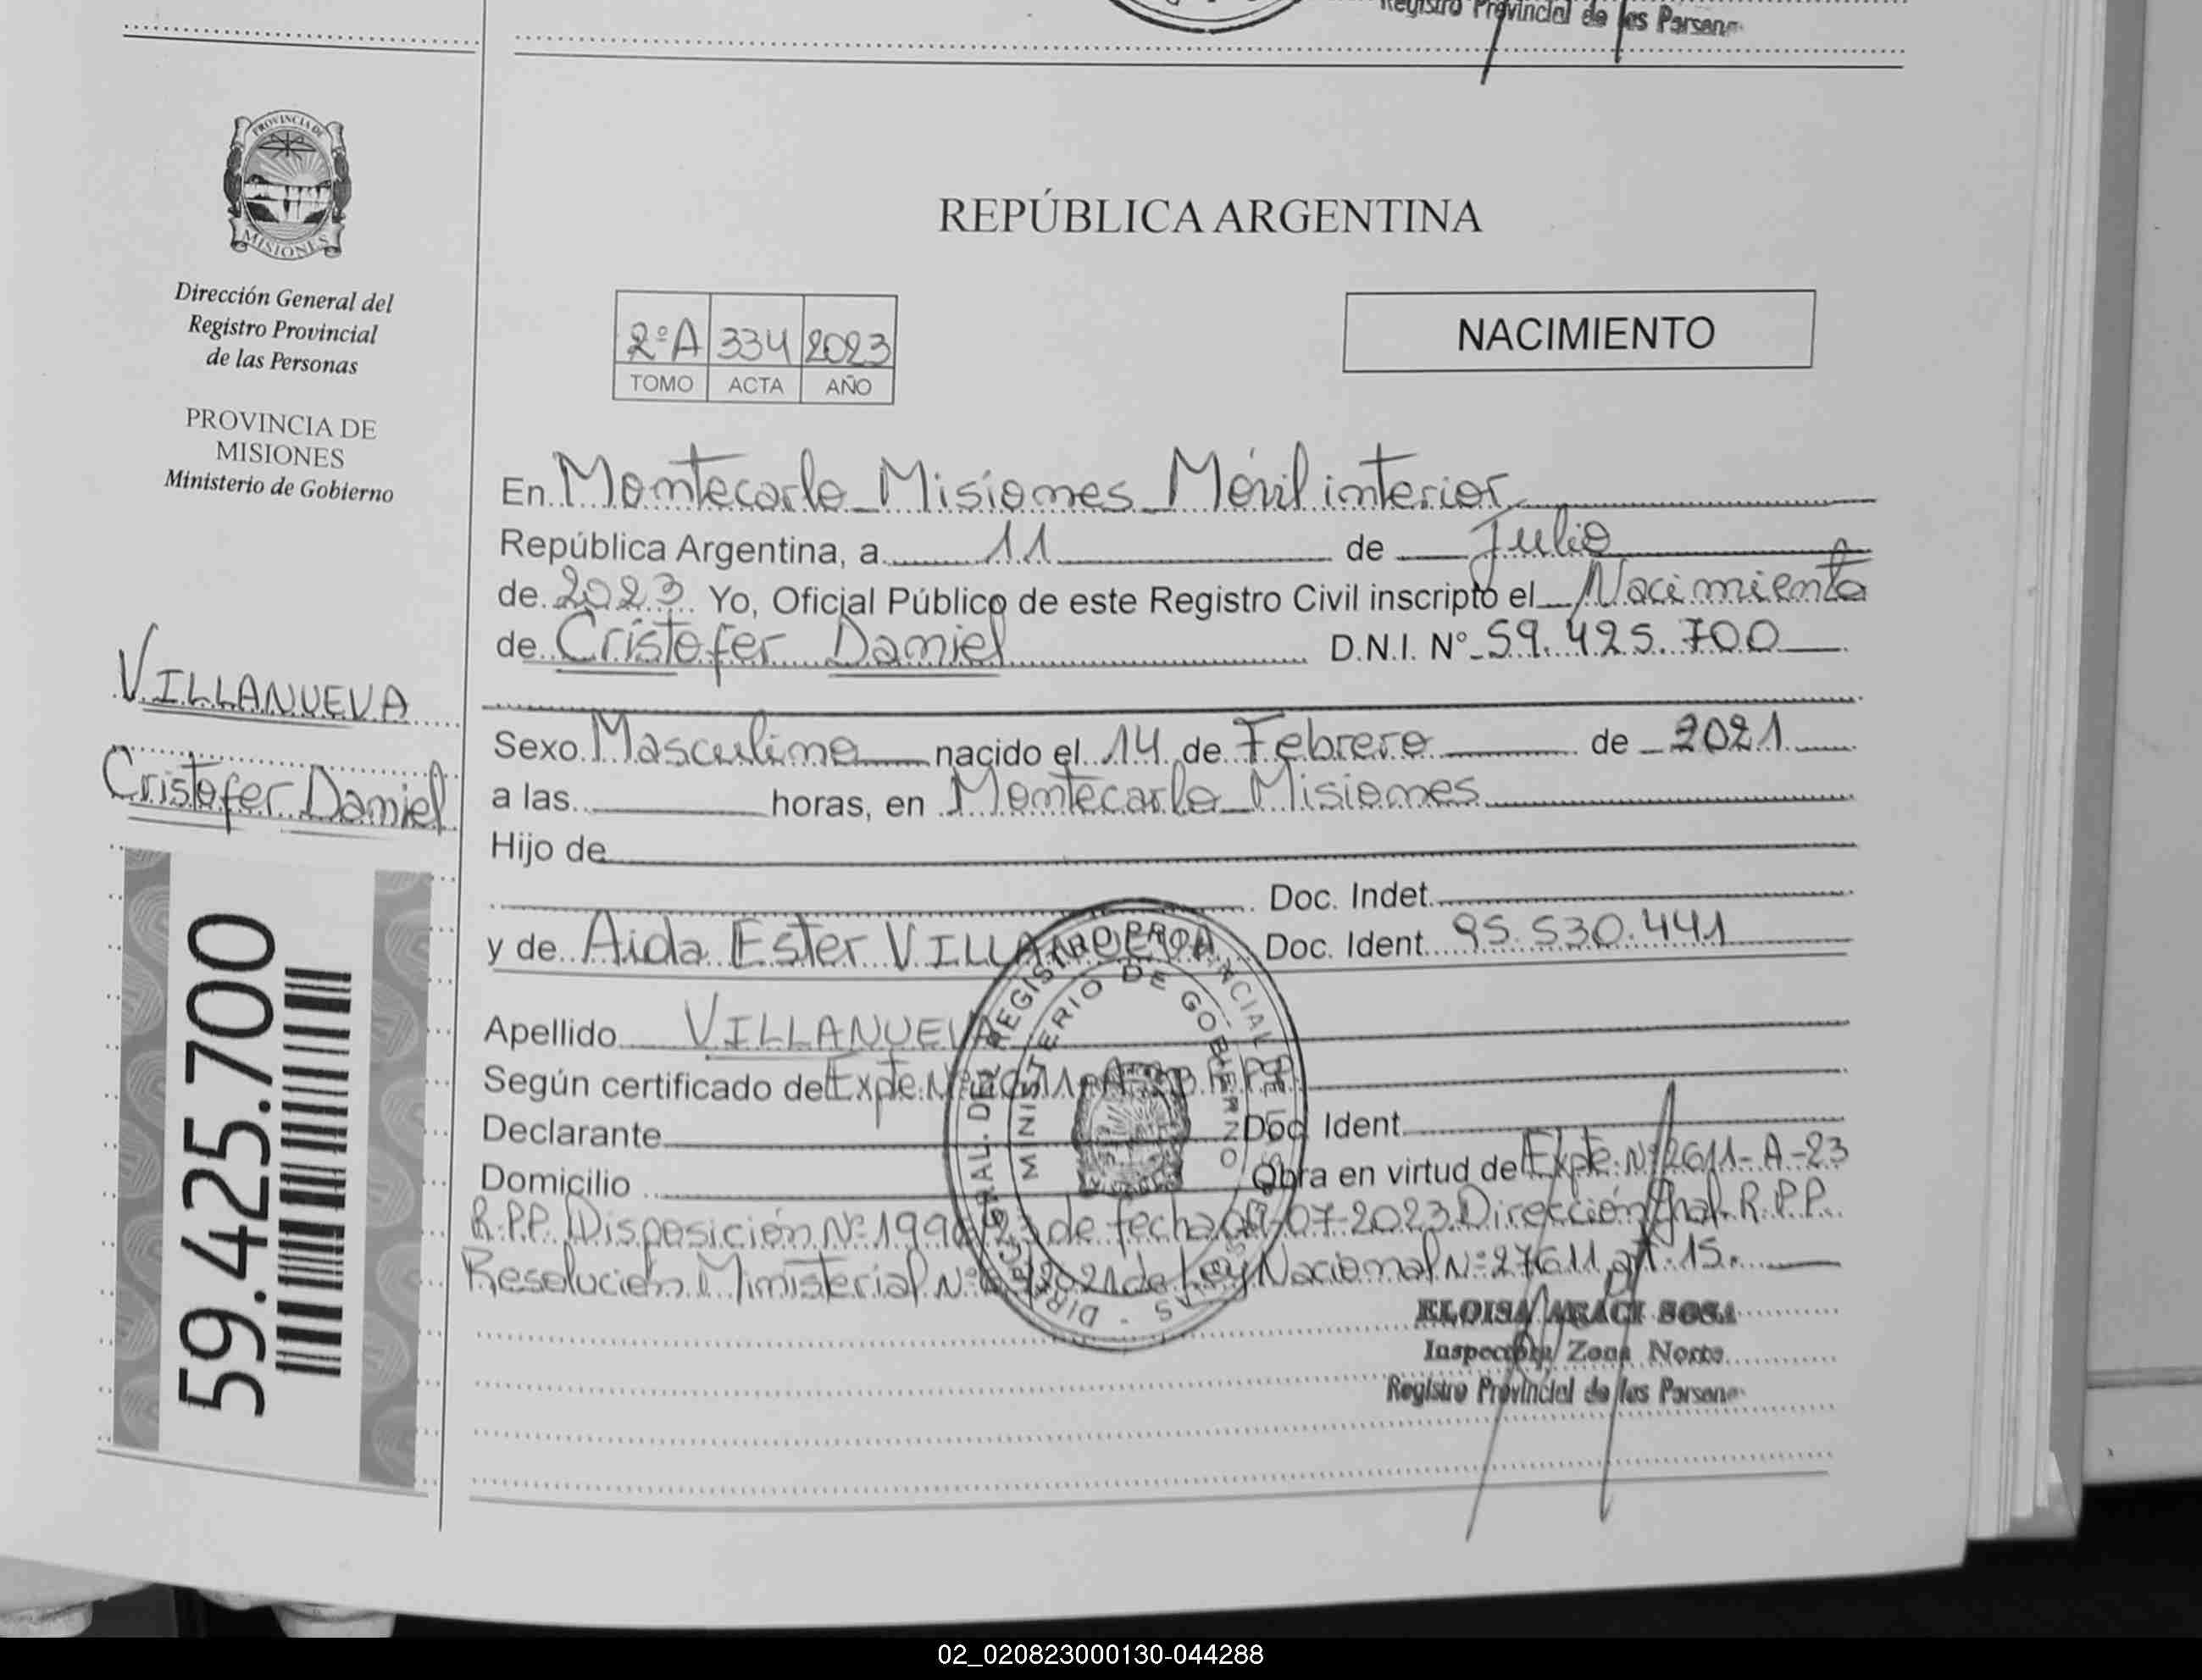 Registro Provincial de las Personas
PROVINCIA DE
MISIONES
Dirección General del
Registro Provincial
de las Personas
PROVINCIA DE
MISIONES
Ministerio de Gobierno
VILLANUEVA
Cristofer Daniel
59.425.700
REPÚBLICA ARGENTINA
2ºA 334 2023
TOMO ACTA AÑO
NACIMIENTO
En Montecarlo - Misiones - Móvil interior
República Argentina, a 11 de Julio
de 2023 Yo, Oficial Público de este Registro Civil inscripto el Nacimiento
de Cristofer Daniel D.N.I. Nº 59.425.700
Sexo Masculino nacido el 14 de Febrero de 2021
a las horas, en Montecarlo - Misiones
Hijo de
Doc. Indet.
y de Aida Ester VILLANUEVA Doc. Ident. 95.530.441
Apellido VILLANUEVA
Según certificado de Expte. Nº 2611-A-23 R.P.P.
Declarante Doc. Ident.
Domicilio Obra en virtud de Expte. Nº 2611-A-23
R.P.P. Disposición Nº 199 /23 de fecha -07-2023 Dirección Gral. R.P.P.
Resolución Ministerial Nº /2021 de Ley Nacional Nº 27611 art. 15.
DIRECCIÓN GRAL. DEL REGISTRO PROVINCIAL DE LAS PERSONAS
MINISTERIO DE GOBIERNO
ELOISA ARACI SOSA
Inspectora Zona Norte
Registro Provincial de las Personas
02_020823000130-044288